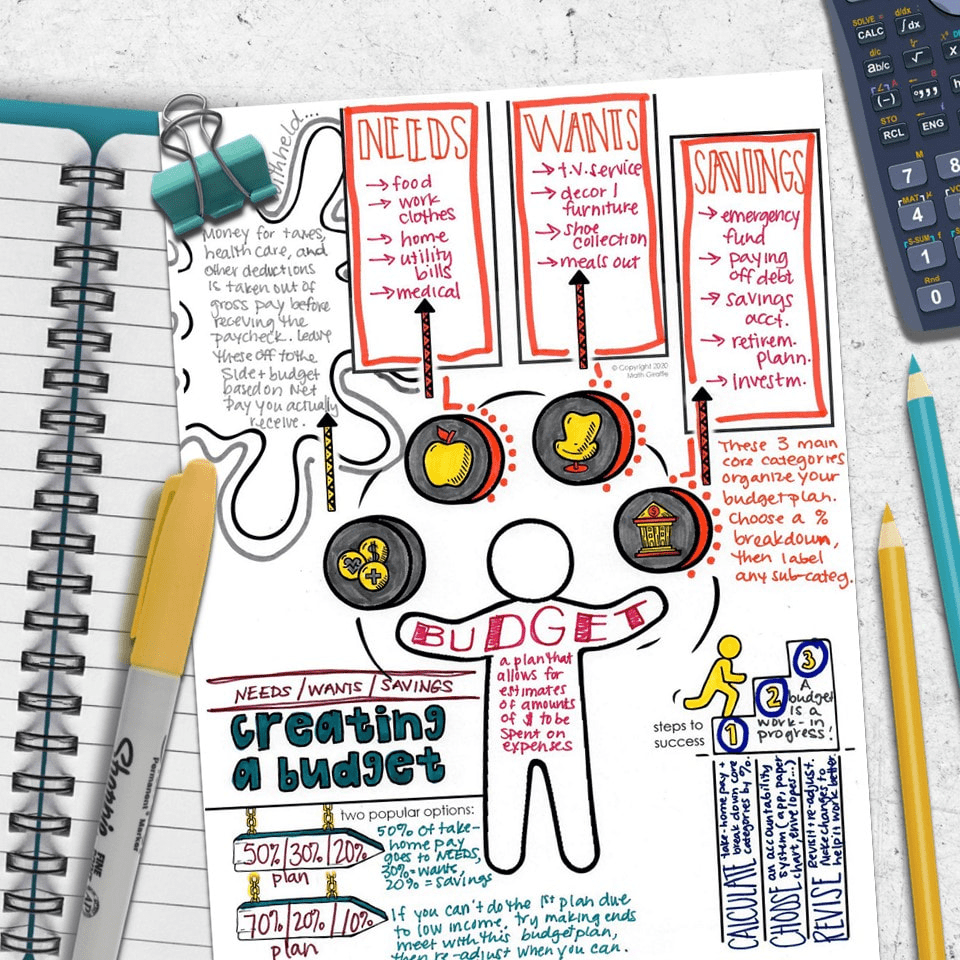 withheld...
Money for taxes,
health care, and
other deductions
is taken out of
gross pay before
receving the
paycheck. leave
these off to the
side + budget
based on Net
Pay you actually
receive.
NEEDS
→ food
→ work
clothes
→ home
→ utility
bills
→ medical
WANTS
→ t.v. service
→ decor /
furniture
→ shoe
collection
→ meals out
© Copyright 2020
Math Giraffe
SAVINGS
→ emergency
fund
→ paying
off debt
→ savings
acct.
→ retirem.
plann.
→ Investm.
These 3 main
core categories
organize your
budget plan.
Choose a %
breakdown,
then label
any sub-categ.
BUDGET
a plan that
allows for
estimates
of amounts
of $ to be
spent on
expenses
NEEDS / WANTS / SAVINGS
creating
a budget
two popular options:
50% 30% 20%
plan
50% of take-
home pay
goes to NEEDS,
30% = wants,
20% = savings
70% 20% 10%
plan
If you can't do the 1st plan due
to low income, try making ends
meet with this budget plan,
then re-adjust when you can.
steps to
success
1
2
3
A
budget
is a
work-in
progress!
CALCULATE take-home pay +
break down core
categories by %.
CHOOSE an accountability
system (app, paper
chart, envelopes...)
REVISE Revisit + re-adjust.
Make changes to
help it work better.
Sharpie
Permanent Marker
FINE
SOLVE =
CALC
d/dx
∫dx
d/c
ab/c
√
(-)
STO
RCL
ENG
M
7
8
MAT
4
S-SUM
1
Rnd
0